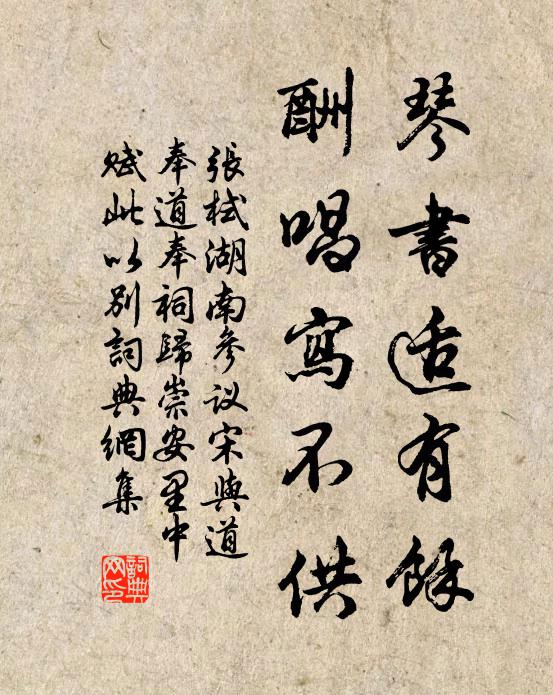 琴書适有餘
酬唱寫不供
張栻湖南參议宋與道
奉道奉祠歸崇安里中
賦此以別詞典網集
詞典網印